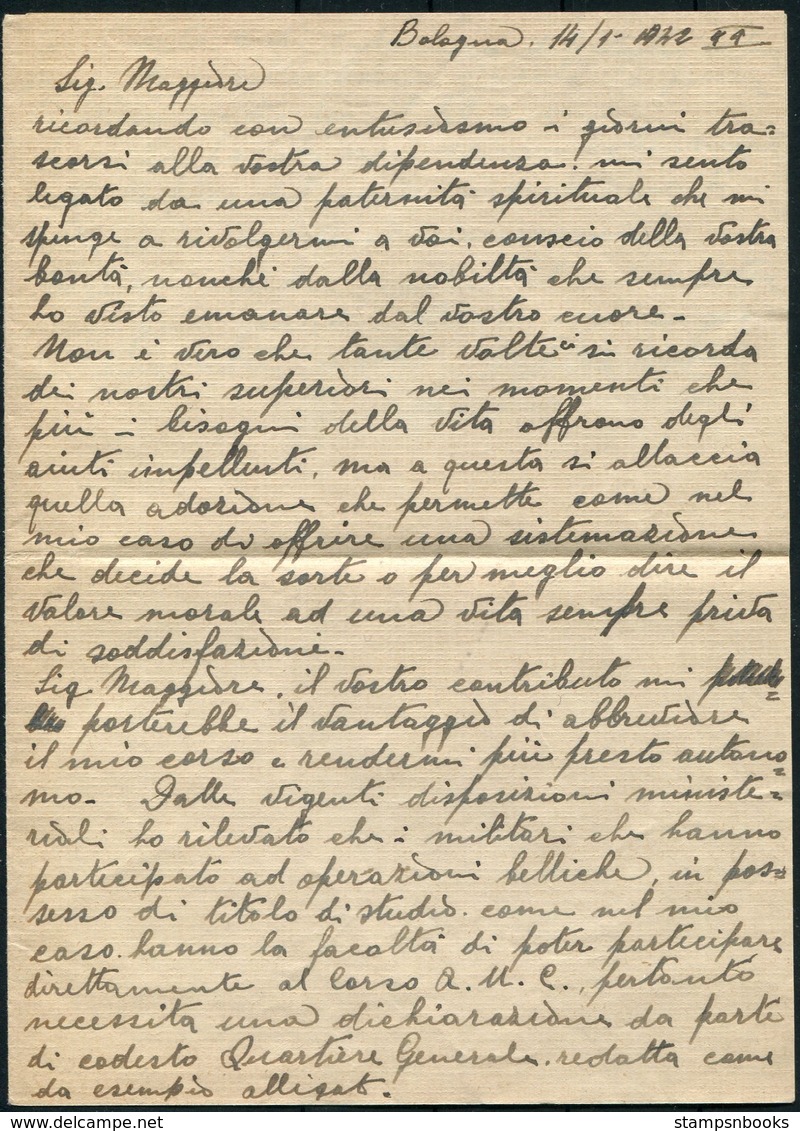 Bologna. 14/1- 1942 XX
Sig. Maggiore
ricordando con entusiasmo i giorni tra=
scorsi alla vostra dipendenza. mi sento
legato da una paternità spirituale che mi
spinge a rivolgermi a voi, conscio della vostra
bontà, nonchè dalla nobiltà che sempre
ho visto emanare dal vostro cuore-
Non è vero che tante volte ci si ricorda
dei nostri superiori nei momenti che
più i bisogni della vita offrono degli
aiuti impellenti, ma a questa si allaccia
quella adozione che permette come nel
mio caso di offrire una sistemazione
che decide la sorte o per meglio dire il
valore morale ad una vita sempre priva
di soddisfazioni-
Sig Maggiore, il vostro contributo mi
porterebbe il vantaggio di abbreviare
il mio corso e rendermi più presto autono=
mo- Dalle vigenti disposizioni ministe=
riali ho rilevato che i militari che hanno
partecipato ad operazioni belliche, in pos=
sesso di titolo di studio. come nel mio
caso. hanno la facoltà di poter partecipare
direttamente al Corso A. U. C., pertanto
necessita una dichiarazione da parte
di codesto Quartiere Generale. redatta come
da esempio allegat.
stampsnbooks
delcampe.net